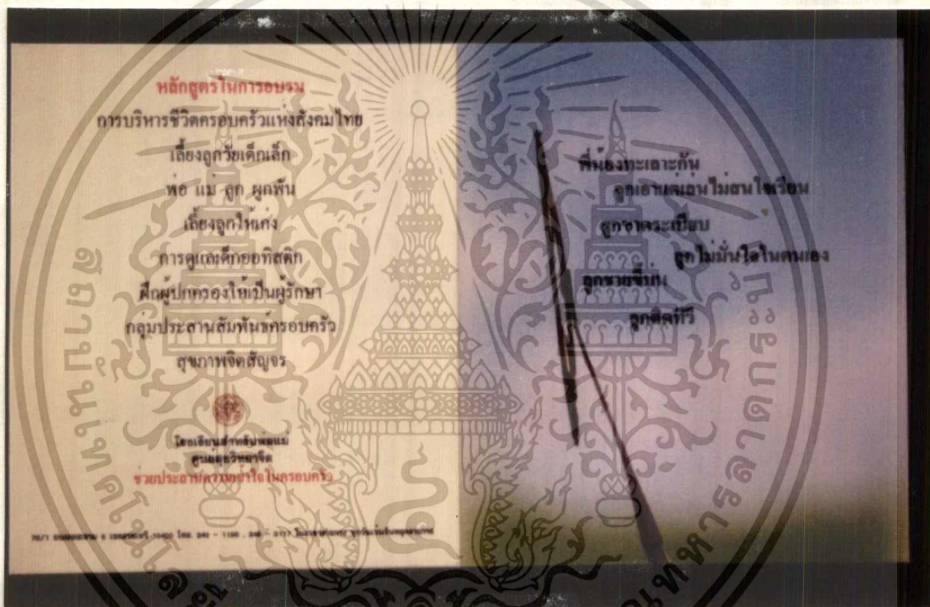 หลักสูตรในการอบรม
การบริหารชีวิตครอบครัวแห่งสังคมไทย
เลี้ยงลูกวัยเด็กเล็ก
พ่อ แม่ ลูก ผูกพัน
เลี้ยงลูกให้เก่ง
การดูแลเด็กออทิสติก
ฝึกผู้ปกครองให้เป็นผู้รักษา
กลุ่มประสานสัมพันธ์ครอบครัว
สุขภาพจิตสัญจร
โรงเรียนสำหรับพ่อแม่
ศูนย์สุขวิทยาจิต
ช่วยประสานความเข้าใจในครอบครัว
พี่น้องทะเลาะกัน
ลูกเอาแต่เล่นไม่สนใจเรียน
ลูกขาดระเบียบ
ลูกไม่มั่นใจในตนเอง
ลูกชายขี้บ่น
ลูกติดทีวี